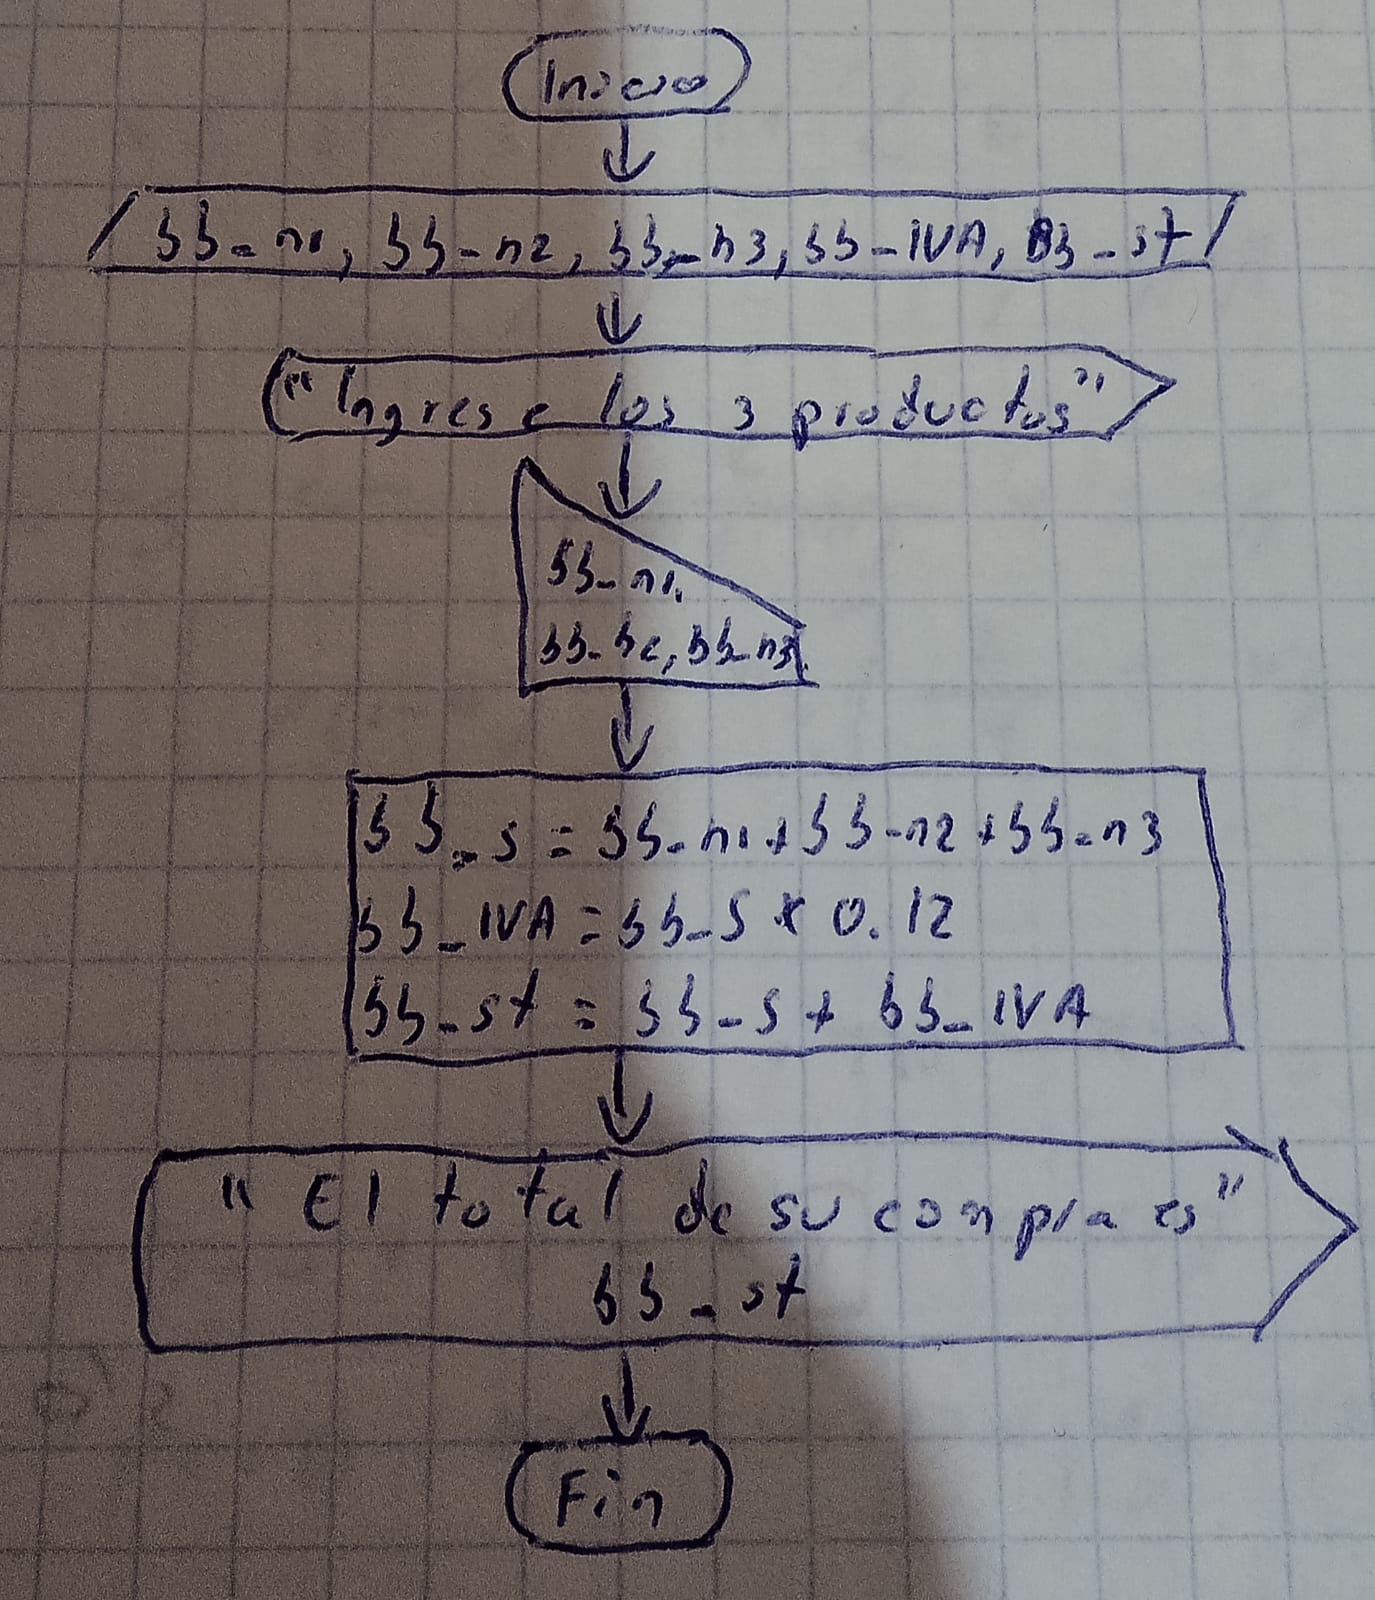 Inicio
bb_n1, bb_n2, bb_n3, bb_IVA, Bb_st
"Ingrese los 3 productos"
bb_n1,
bb_n2, bb_n3
bb_s = bb_n1 + bb_n2 + bb_n3
bb_IVA = bb_s * 0.12
bb_st = bb_s + bb_IVA
"El total de su compra es"
bb_st
Fin